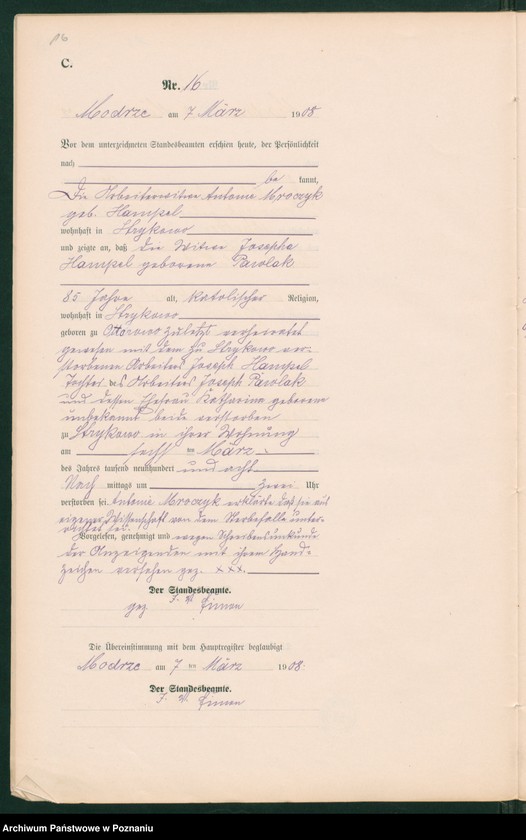 16
C.
Nr. 16
Modrze am 7 März 1908
Vor dem unterzeichneten Standesbeamten erschien heute, der Persönlichkeit
nach
be kannt,
Die Arbeiterwitwe Antonie Mroczyk
geb. Hampel
wohnhaft in Strykowo
und zeigte an, daß die Witwe Josepha
Hampel geborene Pawlak
85 Jahre alt, katolischer Religion,
wohnhaft in Strykowo
geboren zu Ottorowo zuletzt verheiratet
gewesen mit dem zu Strykowo ver-
storbenen Arbeiter Joseph Hampel
Tochter des Arbeiters Joseph Pawlak
und dessen Ehefrau Katharina geborene
unbekannt beide verstorben
zu Strykowo in ihrer Wohnung
am sechs ten März
des Jahres tausend neunhundert und acht
Nach mittags um zwei Uhr
verstorben sei. Antonie Mroczyk erklärte daß sie aus
eigener Wissenschaft von dem Sterbefalle unter-
richtet sei.
Vorgelesen, genehmigt und wegen Schreibensunkunde
der Anzeigenden mit ihrem Hand-
zeichen versehen gez. xxx.
Der Standesbeamte.
gez J. V.
Die Übereinstimmung mit dem Hauptregister beglaubigt
Modrze am 7 ten März 1908.
Der Standesbeamte.
J. V.
Archiwum Państwowe w Poznaniu